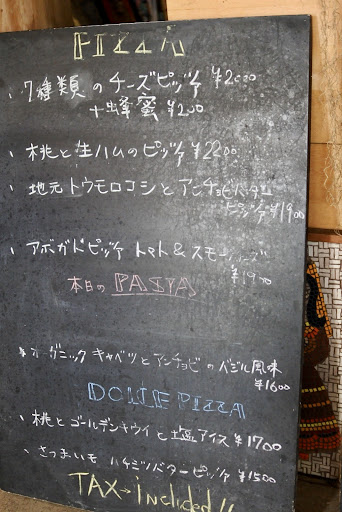 PIZZA
、7種類のチーズピッツァ ¥2000
+蜂蜜 ¥200
、桃と生ハムのピッツァ ¥2200
、地元トウモロコシとアンチョビバター
ピッツァ ¥1900
、アボガドピッツァ トマト&スモークチーズ
¥1900
本日の PASTA
オーガニック キャベツとアンチョビのバジル風味
¥1600
DOLCE PIZZA
、桃とゴールデンキウイと塩アイス ¥1700
、さつまいも ハチミツバターピッツァ ¥1500
TAX→included!!